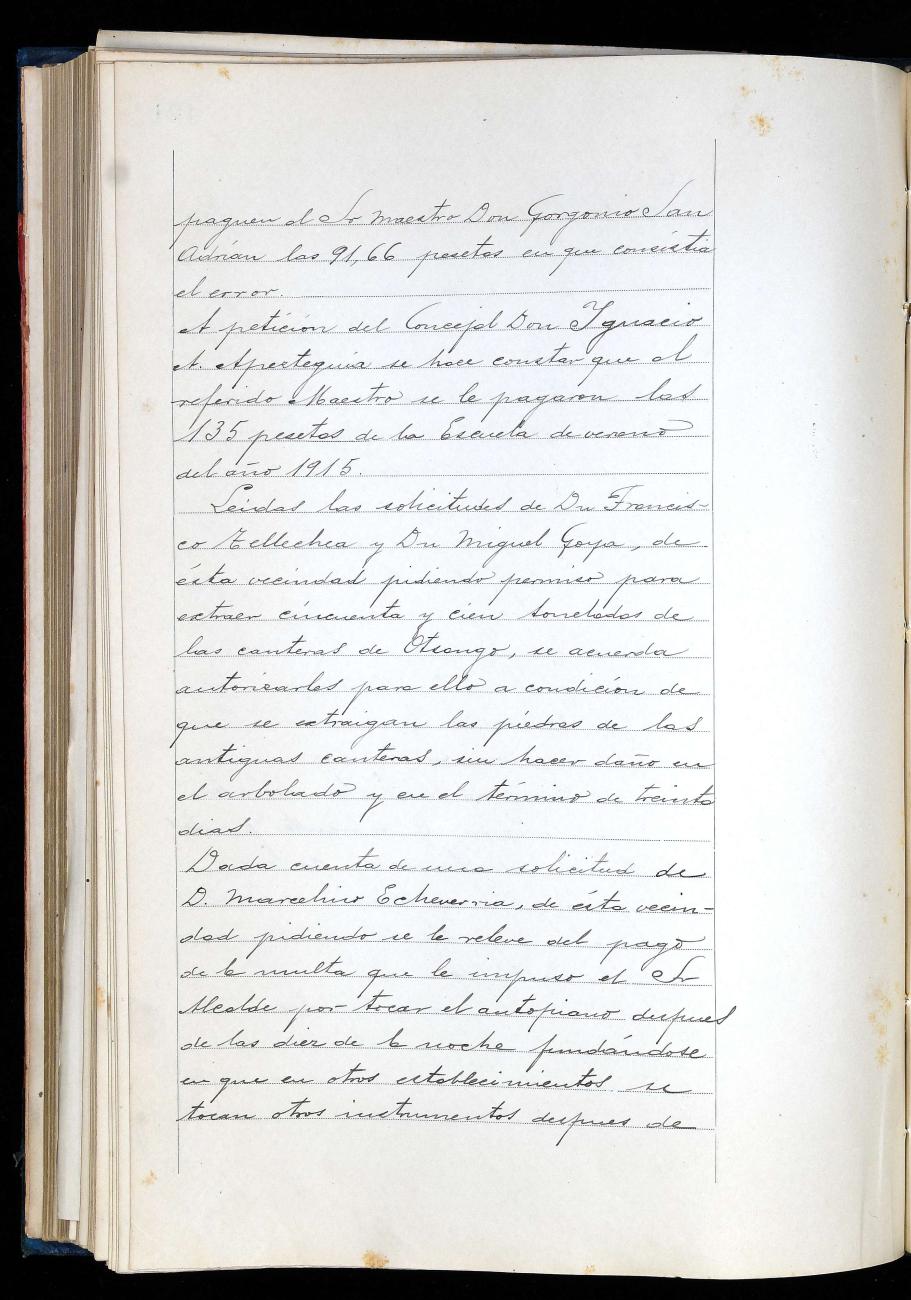 paguen al Sr Maestro Don Gorgonio San
Adrián las 91,66 pesetas en que consistia
el error.
A petición del Concejal Don Ygnacio
A. Aperteguia se hace constar que al
referido Maestro se le pagaron las
135 pesetas de la Escuela de verano
del año 1915.
Leidas las solicitudes de Dn Francis-
co Tellechea y Dn Miguel Goya, de
ésta vecindad pidiendo permiso para
extraer cincuenta y cien toneladas de
las canteras de Otsango, se acuerda
autorisarles para ello a condición de
que se extraigan las piedras de las
antiguas canteras, sin hacer daño en
el arbolado y en el término de treinta
dias.
Dada cuenta de una solicitud de
D. Marcelino Echeverria, de ésta vecin-
dad pidiendo se le releve del pago
de la multa que le impuso el Sr
Alcalde por tocar el autopiano despues
de las diez de la noche fundándose
en que en otros establecimientos se
tocan otros instrumentos despues de